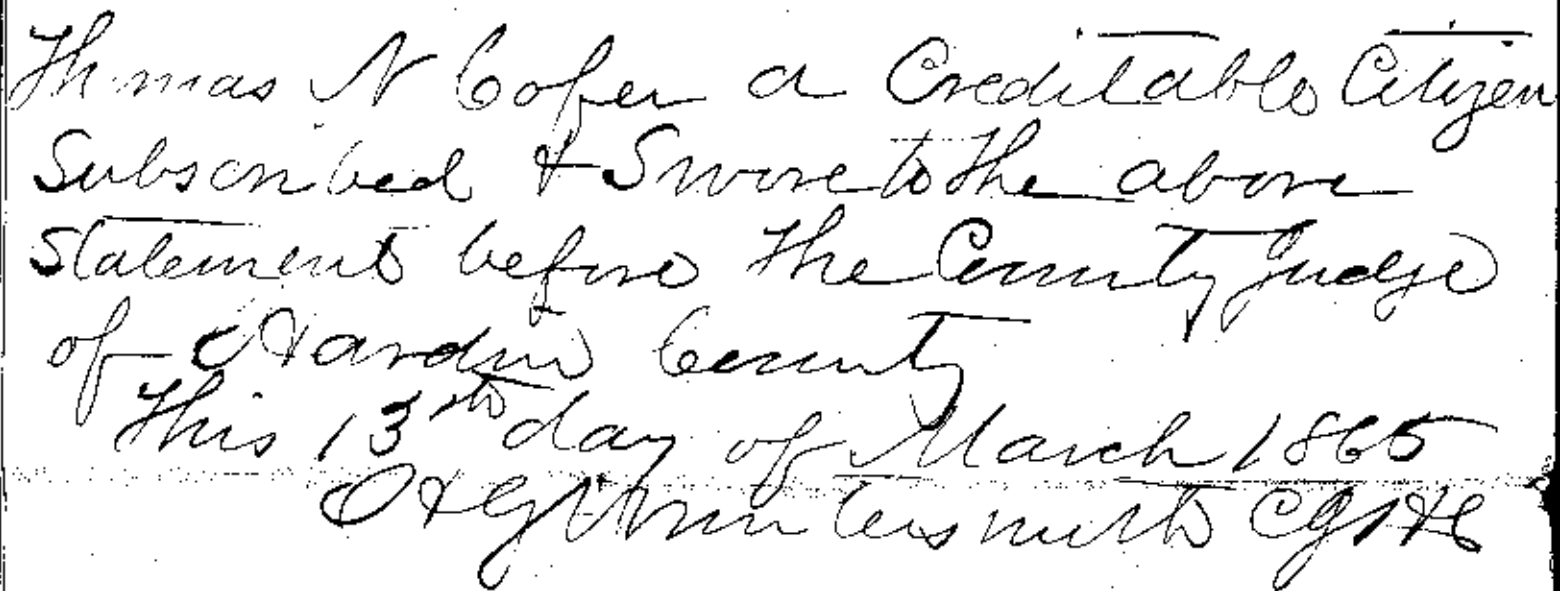 Thomas N Cofer a Creditable Citizen
Subscribed & Swore to the above
Statement before the County Judge
of Hardin County
This 13th day of March 1865
Wintersmith CJHC